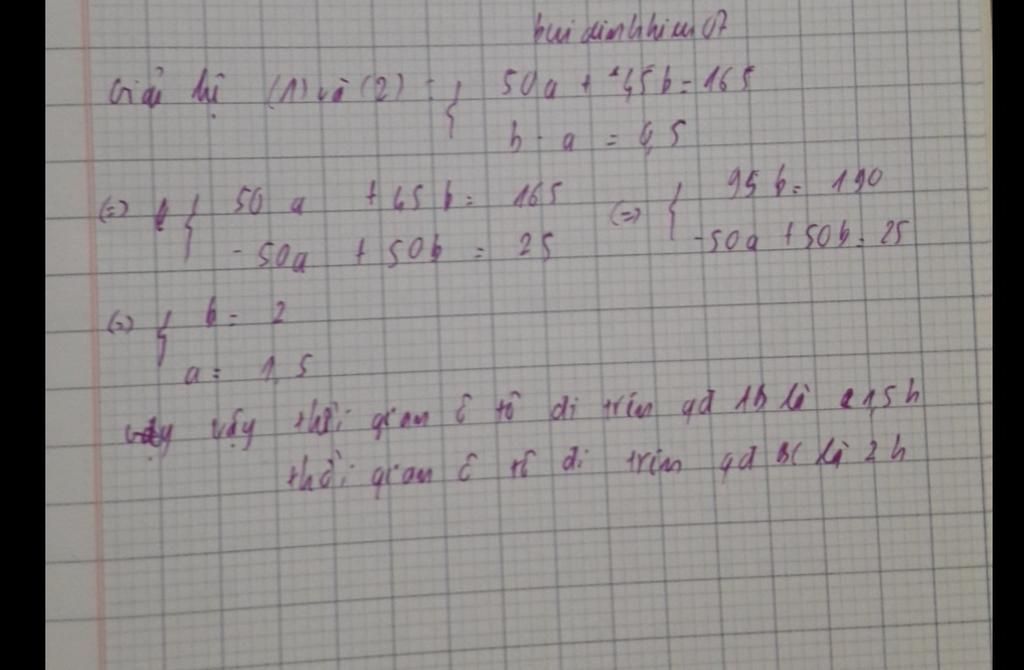 buidinhhieu07
Giải hệ (1) và (2) : { 50a + 45b = 165
b - a = 0,5
(=) { 50a + 45b = 165 (=) { 95b = 190
-50a + 50b = 25 -50a + 50b = 25
(=) { b = 2
a = 1,5
vậy thời gian ô tô đi trên qđ AB là 1,5h
thời gian ô tô đi trên qđ BC là 2h